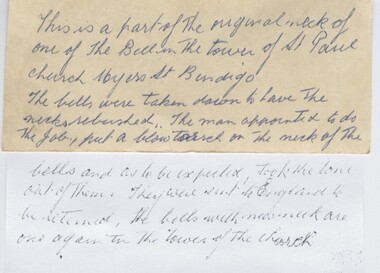 This is a part of the original neck of
one of the Bell in the tower of St Paul
church Myers St Bendigo
The bells were taken down to have the
necks rebushed. The man appointed to do
the Job, put a blow torch on the neck of the
bells and as to be expected, took the tone
out of them. They were sent to England to
be retuned, the bells with new neck are
once again in the tower of the church